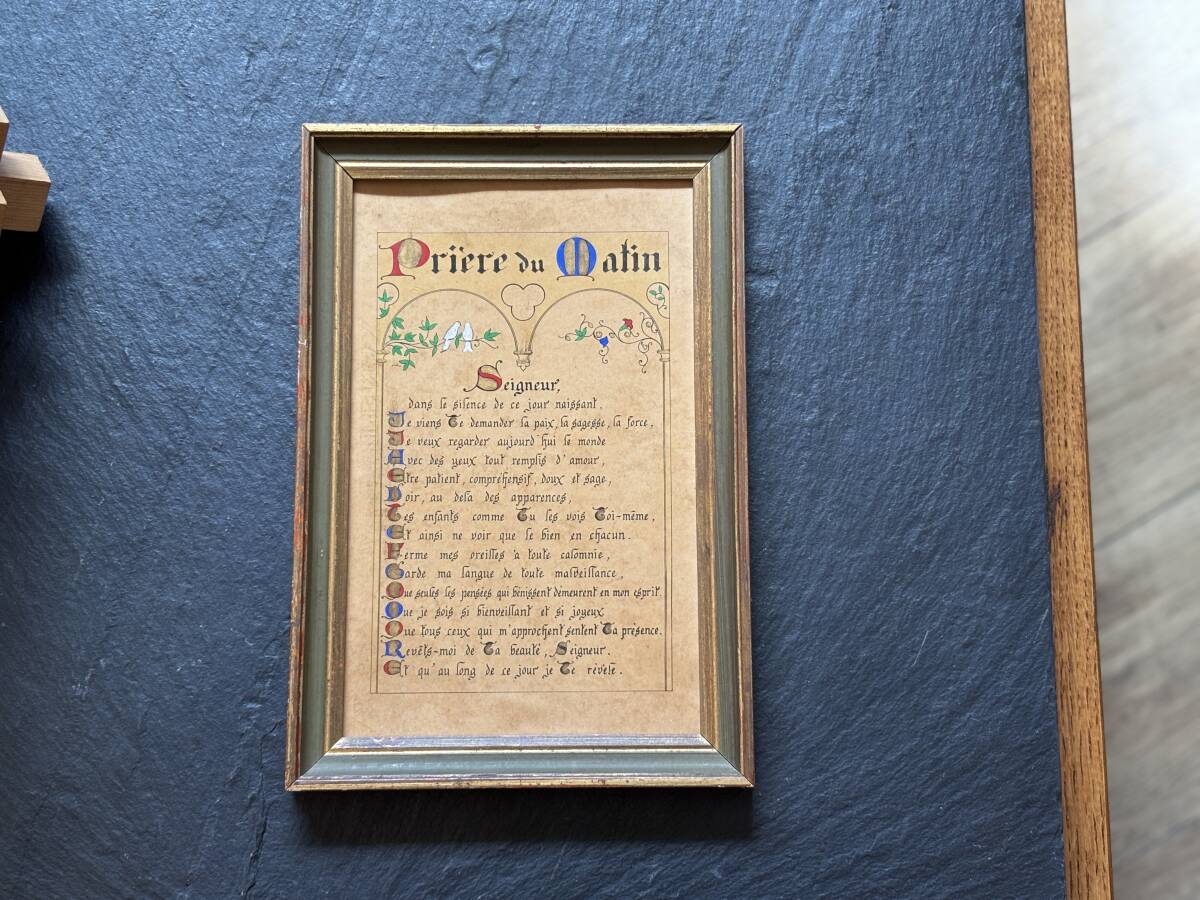 Prière du Matin
Seigneur,
dans le silence de ce jour naissant,
Je viens Te demander la paix, la sagesse, la force,
Je veux regarder aujourd'hui le monde
Avec des yeux tout remplis d'amour,
Etre patient, compréhensif, doux et sage,
Voir, au dela des apparences,
Tes enfants comme Tu les vois Toi-même,
Et ainsi ne voir que le bien en chacun.
Ferme mes oreilles à toute calomnie,
Garde ma langue de toute malveillance,
Que seules les pensées qui bénissent demeurent en mon esprit.
Que je sois si bienveillant et si joyeux
Que tous ceux qui m'approchent sentent Ta présence.
Revêts-moi de Ta beauté, Seigneur.
Et qu'au long de ce jour je Te révèle.